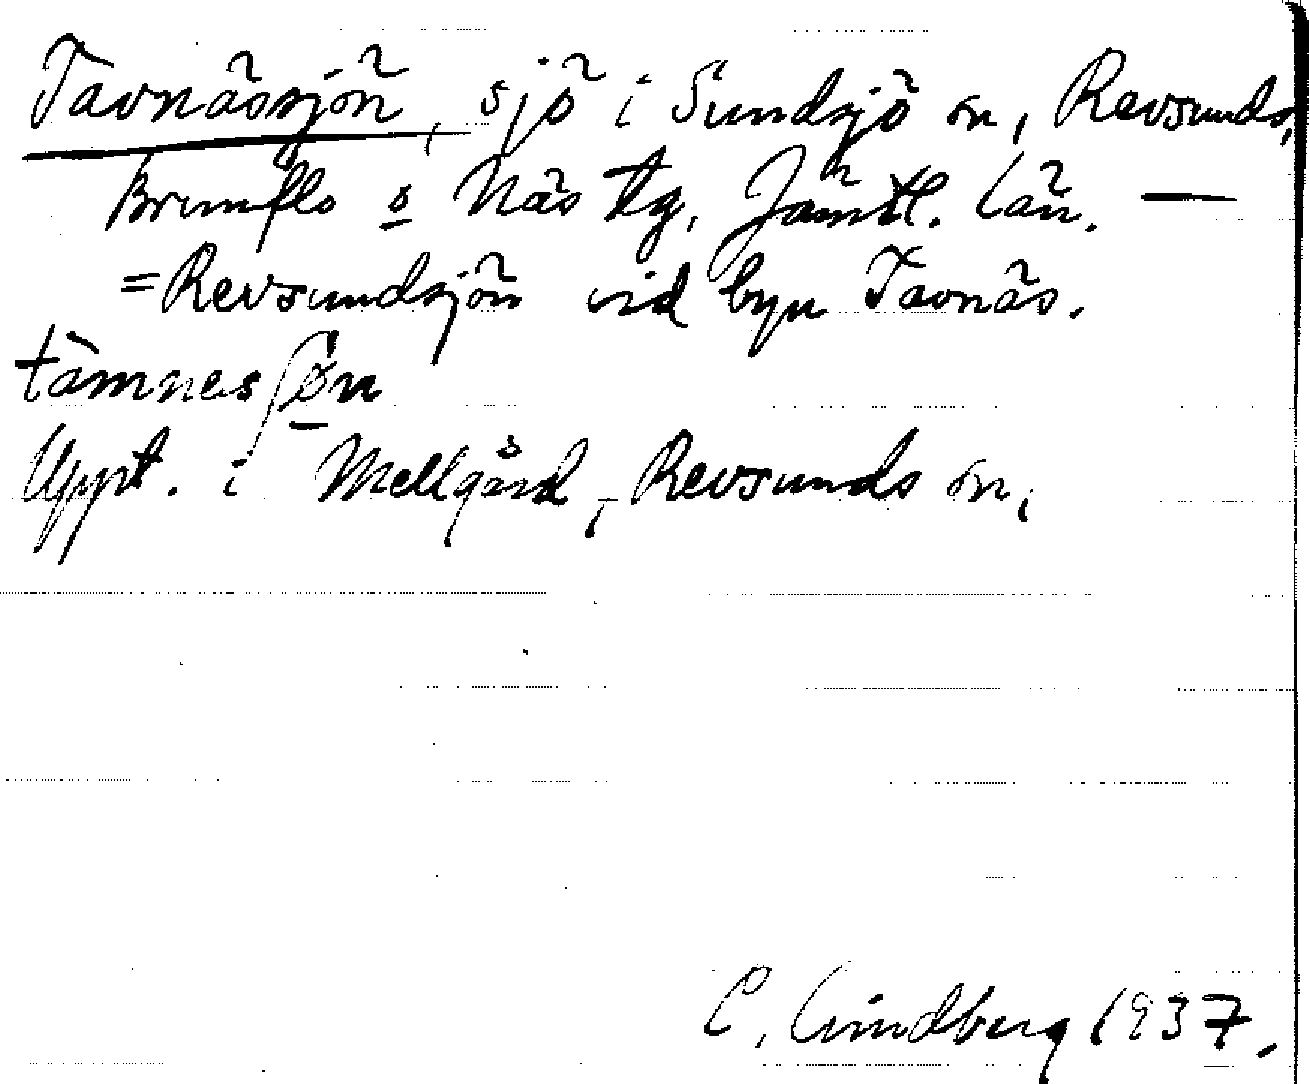 Tavnässjön, sjö i Sundsjö sn, Revsunds,
Brunflo o Näs tg, Jämtl. län. —
=Revsundsjön vid byn Tavnäs.
tàmnesʃøn
Uppt. i Mellgård, Revsunds sn,
C. Lindberg 1937.